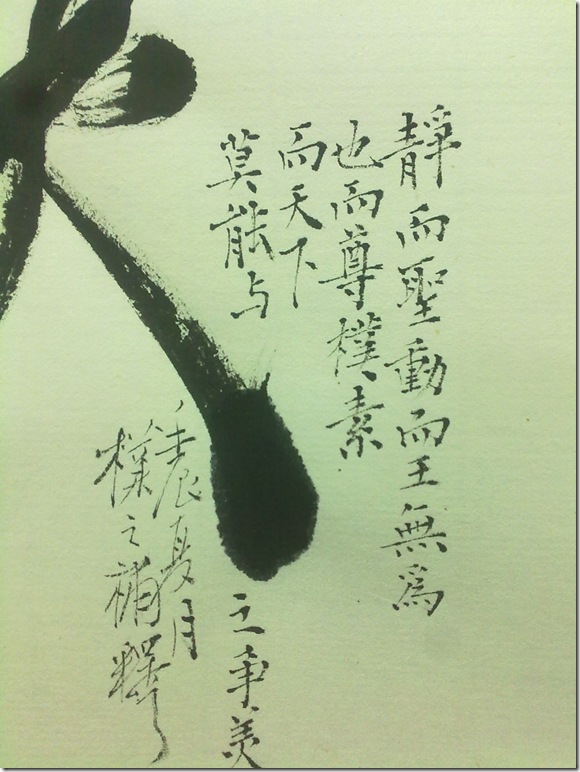 靜而聖動而王無爲
也而尊樸素
而天下
莫能与之争美
壬辰夏月
樸之補釋